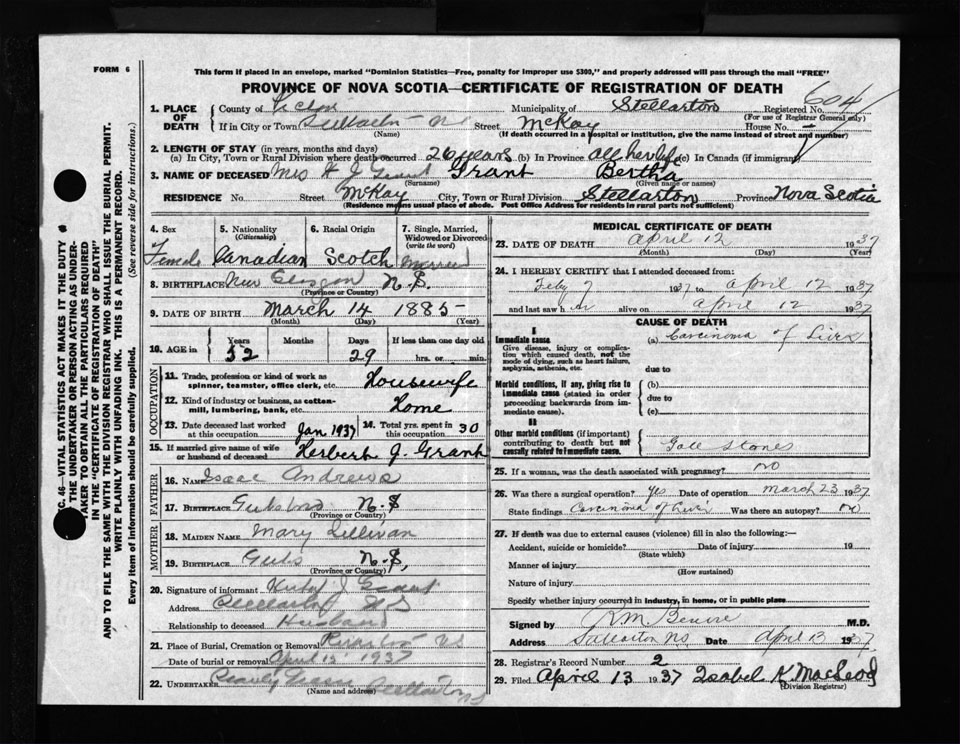 FORM 6
This form if placed in an envelope, marked "Dominion Statistics—Free, penalty for improper use $300," and properly addressed will pass through the mail "FREE"
PROVINCE OF NOVA SCOTIA—CERTIFICATE OF REGISTRATION OF DEATH
1. PLACE OF DEATH County of Pictou Municipality of Stellarton Registered No. 604
(For use of Registrar General only)
If in City or Town Stellarton NS Street McKay House No.
(If death occurred in a hospital or institution, give the name instead of street and number)
2. LENGTH OF STAY (in years, months and days)
(a) In City, Town or Rural Division where death occurred 26 years (b) In Province all her life (c) In Canada (if immigrant)
3. NAME OF DECEASED Mrs H J Grant Grant Bertha
(Surname) (Given name or names)
RESIDENCE No. Street McKay City, Town or Rural Division Stellarton Province Nova Scotia
(Residence means usual place of abode. Post Office Address for residents in rural parts not sufficient)
4. Sex Female
5. Nationality (Citizenship) Canadian
6. Racial Origin Scotch
7. Single, Married, Widowed or Divorced (write the word) Married
8. BIRTHPLACE New Glasgow N.S.
(Province or Country)
9. DATE OF BIRTH March 14 1885
(Month) (Day) (Year)
10. AGE in Years 52 Months Days 29 If less than one day old hrs. or min.
OCCUPATION
11. Trade, profession or kind of work as spinner, teamster, office clerk, etc. Housewife
12. Kind of industry or business, as cotton-mill, lumbering, bank, etc. Home
13. Date deceased last worked at this occupation Jan 1937 14. Total yrs. spent in this occupation 30
15. If married give name of wife or husband of deceased Herbert J. Grant
FATHER
16. NAME Isaac Andrews
17. BIRTHPLACE Guysboro N.S
(Province or Country)
MOTHER
18. MAIDEN NAME Mary Sullivan
19. BIRTHPLACE N.S,
(Province or Country)
20. Signature of informant Herbert J Grant
Address Stellarton NS
Relationship to deceased Husband
21. Place of Burial, Cremation or Removal NS
Date of burial or removal April 1937
22. UNDERTAKER Stellarton NS
(Name and address)
MEDICAL CERTIFICATE OF DEATH
23. DATE OF DEATH April 12 1937
(Month) (Day) (Year)
24. I HEREBY CERTIFY that I attended deceased from:
Feby 7 1937 to April 12 1937
and last saw her alive on April 12 1937
CAUSE OF DEATH
I
Immediate cause (a) Carcinoma of Liver
Give disease, injury or complication which caused death, not the mode of dying, such as heart failure, asphyxia, asthenia, etc.
due to
Morbid conditions, if any, giving rise to immediate cause (stated in order proceeding backwards from immediate cause).
(b)
due to
(c)
II
Other morbid conditions (if important) contributing to death but not causally related to immediate cause. Gall Stones
25. If a woman, was the death associated with pregnancy? no
26. Was there a surgical operation? yes Date of operation March 23 1937
State findings Carcinoma of Liver Was there an autopsy? no
27. If death was due to external causes (violence) fill in also the following:—
Accident, suicide or homicide? Date of injury 19
(State which)
Manner of injury
(How sustained)
Nature of injury
Specify whether injury occurred in industry, in home, or in public place
Signed by M.D.
Address Stellarton NS Date April 13 1937
28. Registrar's Record Number 2
29. Filed April 13 1937 Isobel K. MacLeod
(Division Registrar)
C. 46—VITAL STATISTICS ACT MAKES IT THE DUTY
THE UNDERTAKER OR PERSON ACTING AS UNDER-
TAKER TO OBTAIN ALL THE PARTICULARS REQUIRED
IN THE "CERTIFICATE OF REGISTRATION OF DEATH"
AND TO FILE THE SAME WITH THE DIVISION REGISTRAR WHO SHALL ISSUE THE BURIAL PERMIT.
WRITE PLAINLY WITH UNFADING INK. THIS IS A PERMANENT RECORD.
Every item of Information should be carefully supplied. (See reverse side for instructions.)